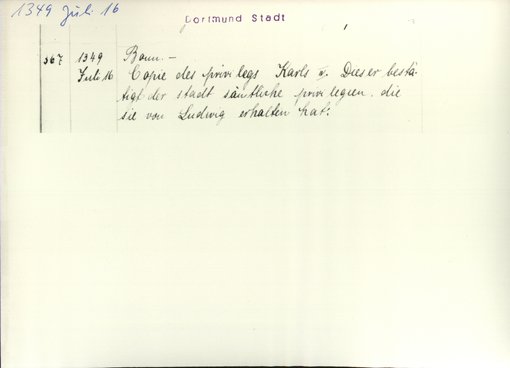 1349 Juli 16
Dortmund Stadt
367 1349 Bonn.-
Juli 16 Copie des privilegs Karls IV. Dieser bestä-
tigt der stadt sämtliche privilegien, die
sie von Ludwig erhalten hat.